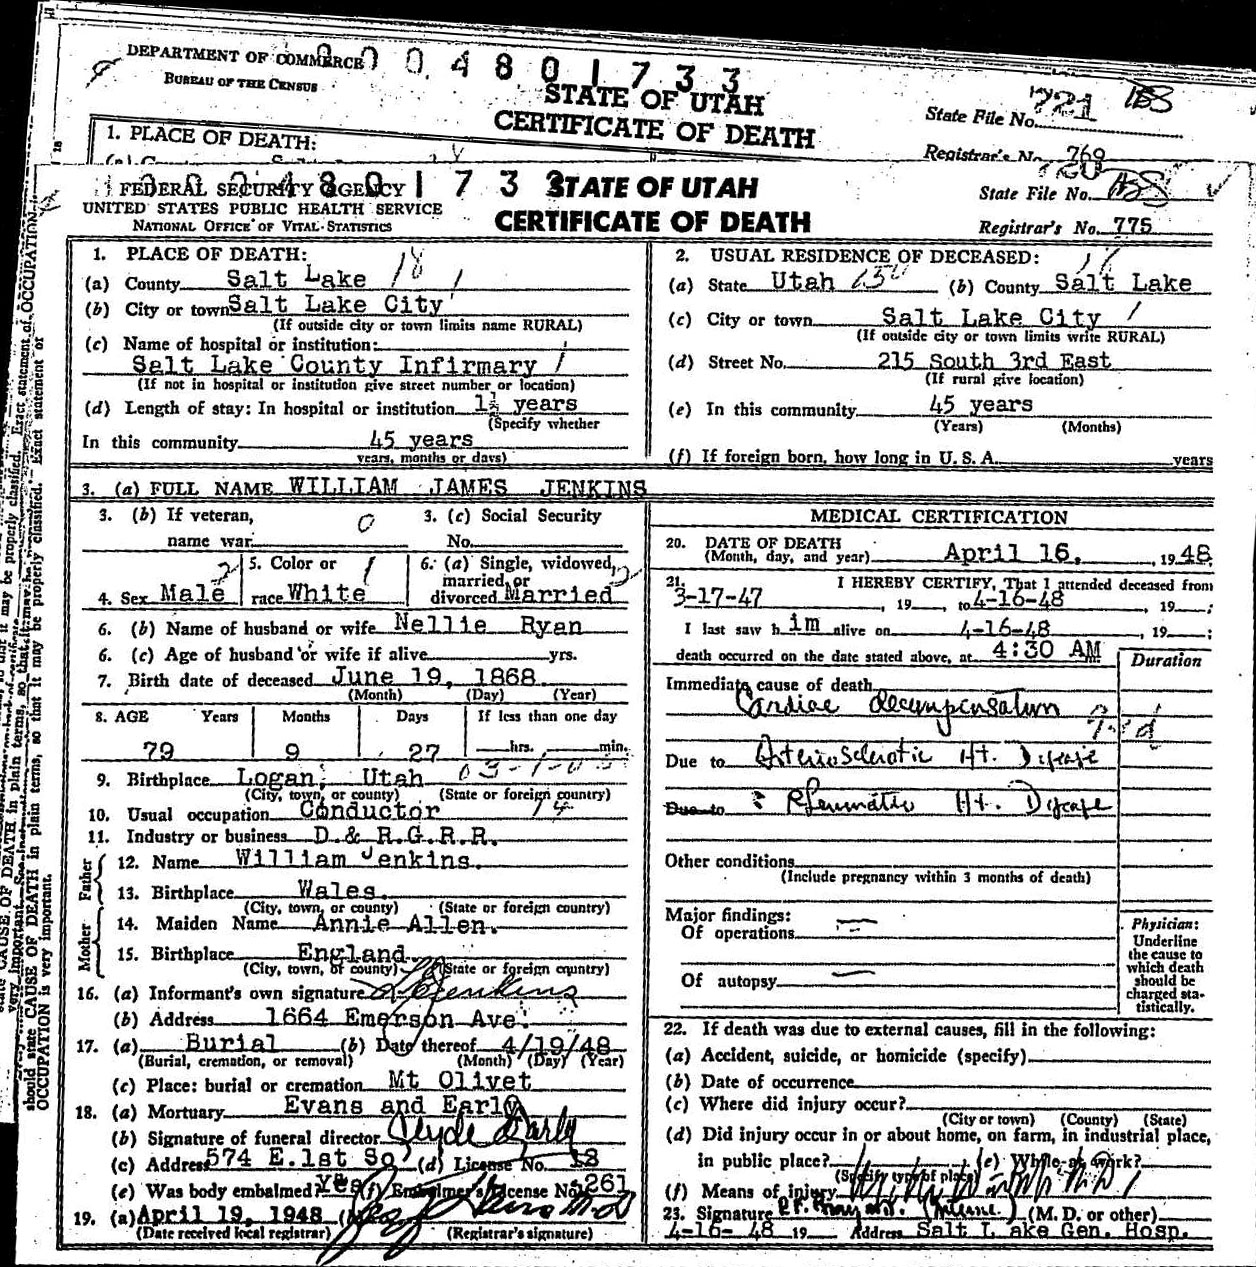 DEPARTMENT OF COMMERCE
BUREAU OF THE CENSUS
0 4 8 0 1 7 3 3
STATE OF UTAH
CERTIFICATE OF DEATH
State File No. 721
Registrar's No. 769
1. PLACE OF DEATH:
FEDERAL SECURITY AGENCY
UNITED STATES PUBLIC HEALTH SERVICE
NATIONAL OFFICE OF VITAL STATISTICS
4 8 0 1 7 3
STATE OF UTAH
CERTIFICATE OF DEATH
State File No.
Registrar's No. 775
1. PLACE OF DEATH:
(a) County Salt Lake 18 1
(b) City or town Salt Lake City
(If outside city or town limits name RURAL)
(c) Name of hospital or institution:
Salt Lake County Infirmary 1
(If not in hospital or institution give street number or location)
(d) Length of stay: In hospital or institution 1½ years
(Specify whether
In this community 45 years
years, months or days)
2. USUAL RESIDENCE OF DECEASED:
(a) State Utah (b) County Salt Lake
(c) City or town Salt Lake City
(If outside city or town limits write RURAL)
(d) Street No. 215 South 3rd East
(If rural give location)
(e) In this community 45 years
(Years) (Months)
(f) If foreign born, how long in U. S. A. years
3. (a) FULL NAME WILLIAM JAMES JENKINS
3. (b) If veteran, name war 0
3. (c) Social Security No.
4. Sex Male 2
5. Color or race White 1
6. (a) Single, widowed, married, or divorced Married 2
6. (b) Name of husband or wife Nellie Ryan
6. (c) Age of husband or wife if alive yrs.
7. Birth date of deceased June 19, 1868
(Month) (Day) (Year)
8. AGE Years Months Days If less than one day
79 9 27 hrs. min.
9. Birthplace Logan, Utah
(City, town, or county) (State or foreign country)
10. Usual occupation Conductor
11. Industry or business D. & R.G.R.R.
Father
12. Name William Jenkins.
13. Birthplace Wales.
(City, town, or county) (State or foreign country)
Mother
14. Maiden Name Annie Allen.
15. Birthplace England
(City, town, or county) (State or foreign country)
16. (a) Informant's own signature Jenkins
(b) Address 1664 Emerson Ave.
17. (a) Burial (b) Date thereof 4/19/48
(Burial, cremation, or removal) (Month) (Day) (Year)
(c) Place: burial or cremation Mt Olivet
18. (a) Mortuary Evans and Early
(b) Signature of funeral director Clyde Early
(c) Address 574 E.1st So (d) License No. 13
(e) Was body embalmed? Yes (f) Embalmer's License No. 261
19. (a) April 19, 1948 (b) M.D
(Date received local registrar) (Registrar's signature)
MEDICAL CERTIFICATION
20. DATE OF DEATH
(Month, day, and year) April 16, 1948
21. I HEREBY CERTIFY, That I attended deceased from
3-17-47, 19 , to 4-16-48, 19 ;
I last saw him alive on 4-16-48, 19 ;
death occurred on the date stated above, at 4:30 AM
Duration
Immediate cause of death
Cardiac decompensation
Due to Arteriosclerotic Ht. Disease
Due to Rheumatic Ht. Disease
Other conditions
(Include pregnancy within 3 months of death)
Major findings:
Of operations
Of autopsy
Physician:
Underline
the cause to
which death
should be
charged sta-
tistically.
22. If death was due to external causes, fill in the following:
(a) Accident, suicide, or homicide (specify)
(b) Date of occurrence
(c) Where did injury occur?
(City or town) (County) (State)
(d) Did injury occur in or about home, on farm, in industrial place,
in public place? (e) While at work?
(Specify type of place)
(f) Means of injury
23. Signature (Interne.) (M. D. or other)
4-16-48 19 Address Salt Lake Gen. Hosp.
should state CAUSE OF DEATH in plain terms, so that it may be properly classified. Exact statement of
OCCUPATION is very important.